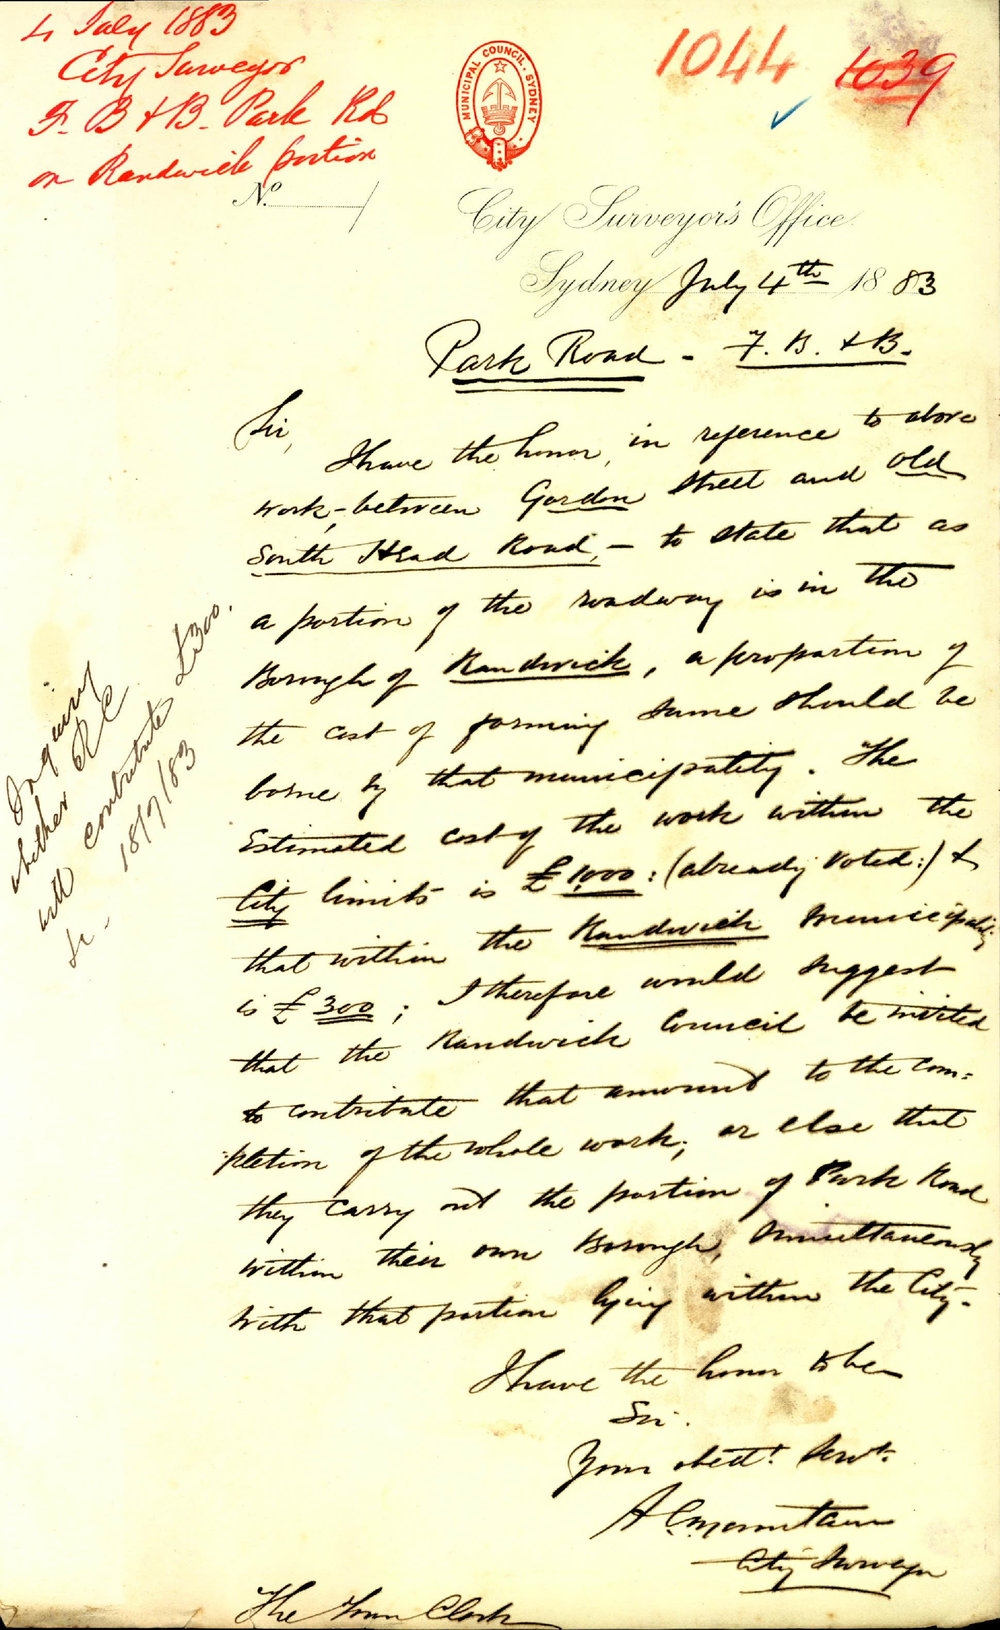 4 July 1883
City Surveyor
F. B & B. Park Rd
on Randwick portion
1044
1039
MUNICIPAL COUNCIL · SYDNEY
No.
City Surveyor's Office
Sydney July 4th 1883
Park Road - F. B. & B.
Sir,
I have the honor, in reference to above
work,- between Gordon Street and Old
South Head Road, - to state that as
a portion of the roadway is in the
Borough of Randwick, a proportion of
the cost of forming same should be
borne by that municipality. The
Estimated cost of the work within the
City limits is £1,000: (already voted:) &
that within the Randwick Municipality
is £300; I therefore would suggest
that the Randwick Council be invited
to contribute that amount to the com:
:pletion of the whole work; or else that
they carry out the portion of Park Road
within their own Borough, simultaneously
with that portion lying within the City.
I have the honor to be
Sir.
Your obedt. Servt.
A C Mountain
City Surveyor
The Town Clerk
Inquiry
whether R C
will contribute £300.
18/7/83